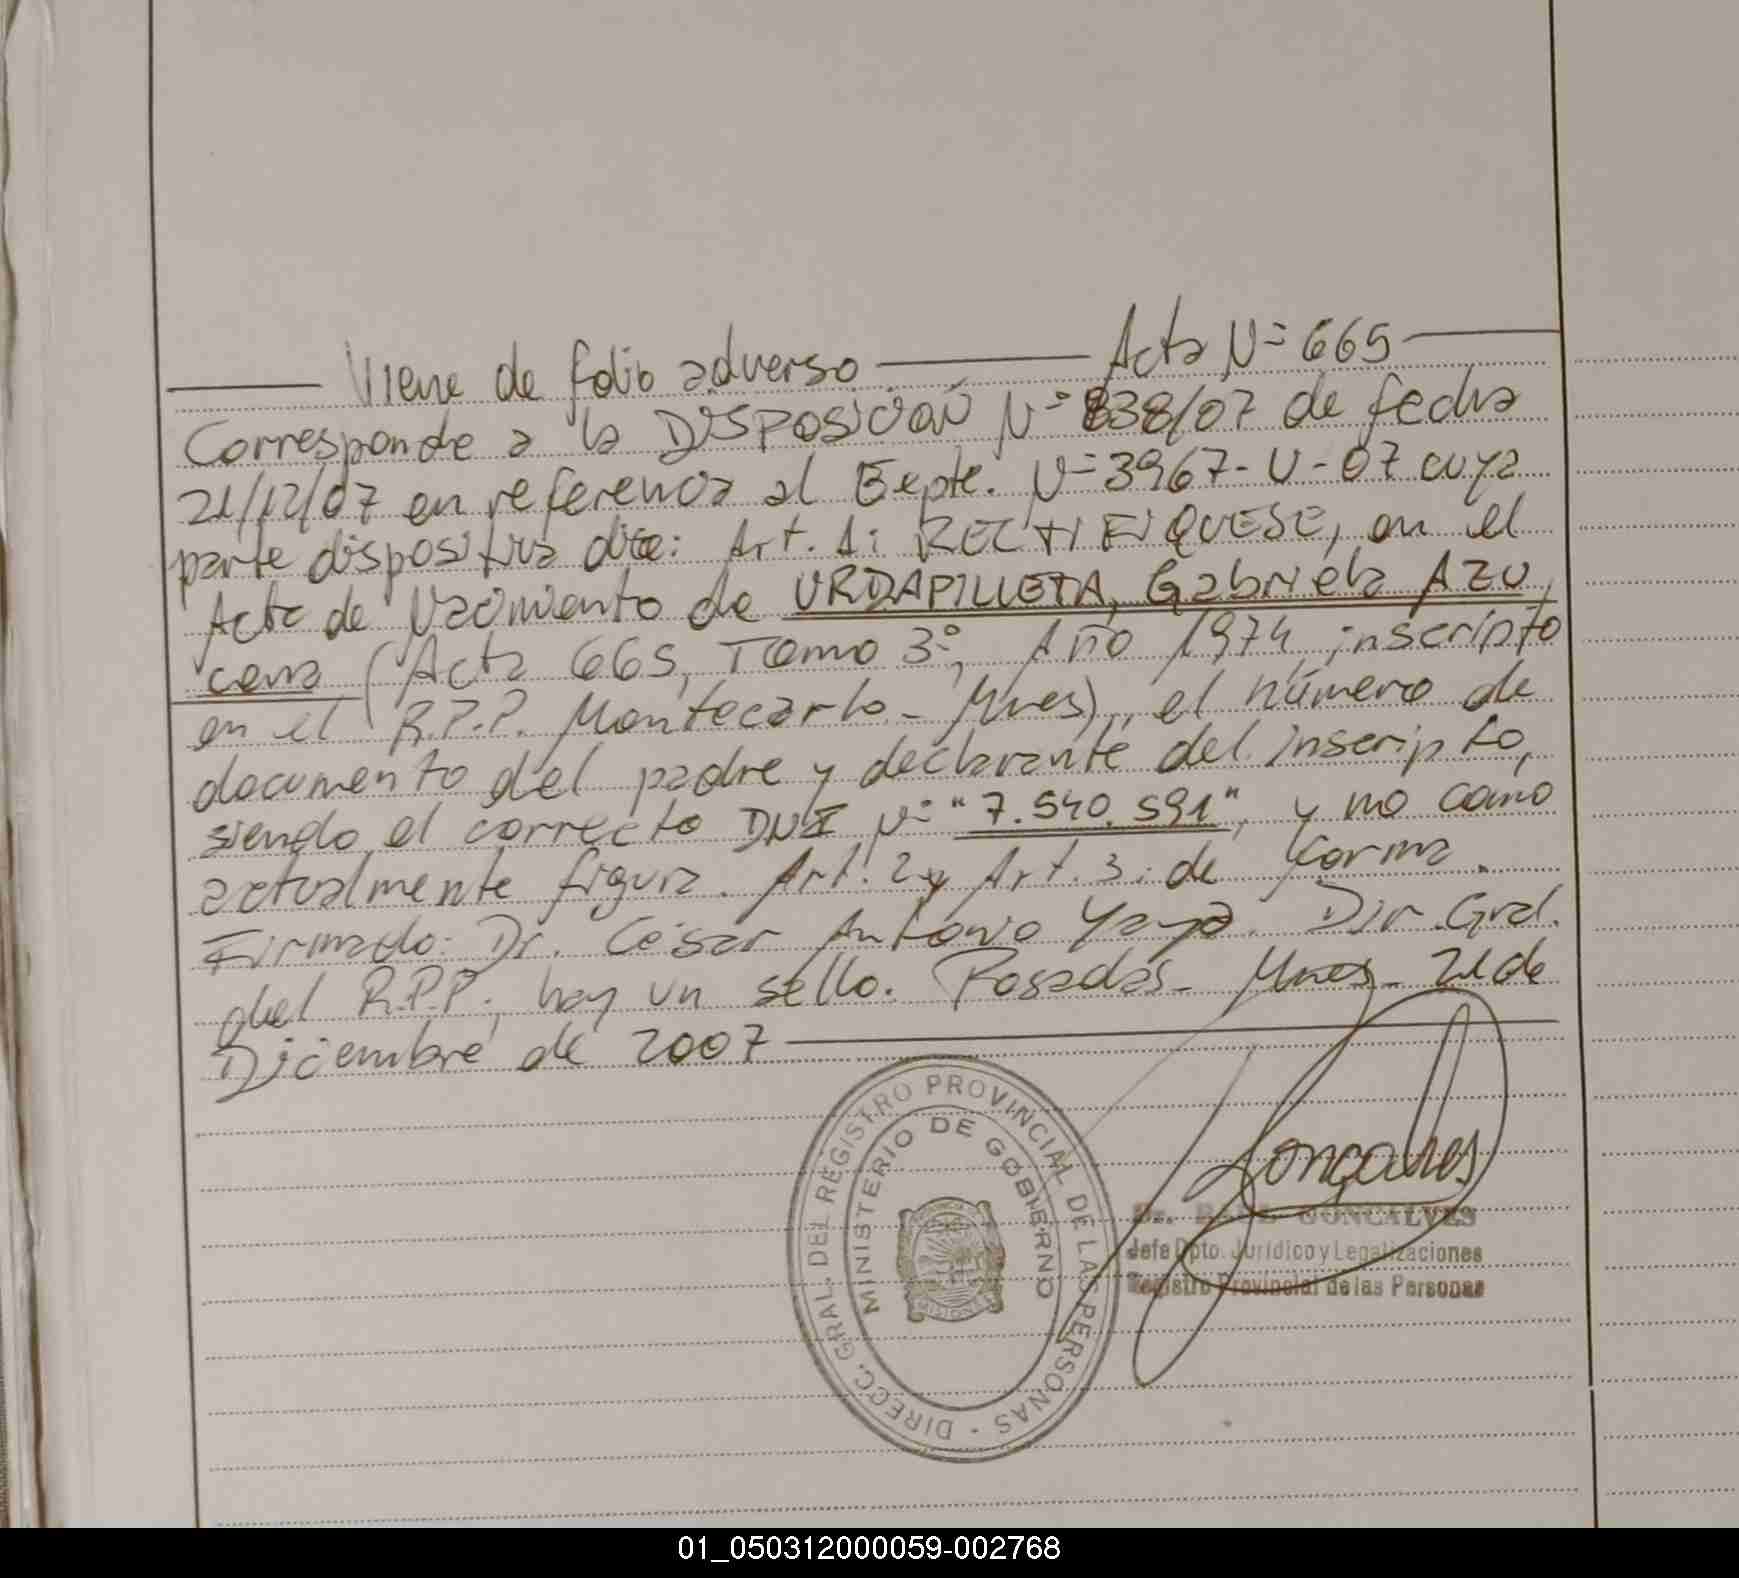 Viene de folio adverso Acta Nº 665
Corresponde a la DISPOSICIÓN Nº 838/07 de fecha
21/12/07 en referencia al Expte. Nº 3967-U-07 cuya
parte dispositiva dice: Art. 1: RECTIFIQUESE, en el
Acta de Nacimiento de URDAPILLETA, Gabriela AZU
cena (Acta 665, Tomo 3º, Año 1974, inscripto
en el R.P.P. Montecarlo - Mnes), el número de
documento del padre y declarante del inscripto,
siendo el correcto DNI Nº "7.540.591", y no como
actualmente figura. Art. 2 y Art. 3: de forma.
Firmado: Dr. César Antonio Yaya. Dir. Gral.
del R.P.P., hay un sello. Posadas - Mnes - 21 de
Diciembre de 2007
DIRECC. GRAL. DEL REGISTRO PROVINCIAL DE LAS PERSONAS -
MINISTERIO DE GOBIERNO
MISIONES
Gonçalves
Dr. RAUL GONCALVES
Jefe Dpto. Jurídico y Legalizaciones
Registro Provincial de las Personas
01_050312000059-002768